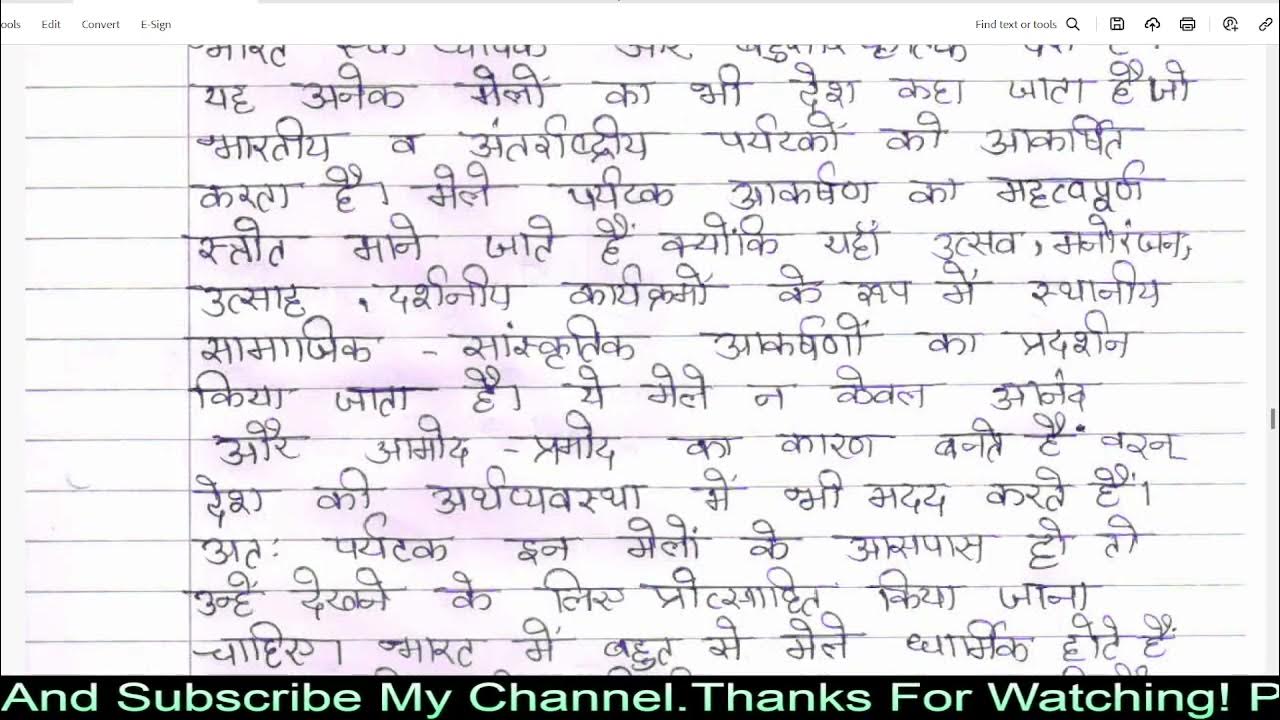 ools Edit Convert E-Sign Find text or tools
भारत एक व्यापक और
यह अनेक मेलों का भी देश कहा जाता है जो
भारतीय व अंतर्राष्ट्रीय पर्यटकों को आकर्षित
करता है। मेले पर्यटक आकर्षण का महत्वपूर्ण
स्त्रोत माने जाते हैं क्योंकि यहाँ उत्सव, मनोरंजन,
उत्साह , दर्शनीय कार्यक्रमों के रूप में स्थानीय
सामाजिक - सांस्कृतिक आकर्षणों का प्रदर्शन
किया जाता है। ये मेले न केवल आनंद
और आमोद - प्रमोद का कारण बनते है वरन्
देश की अर्थव्यवस्था में भी मदद करते हैं।
अतः पर्यटक इन मेलों के आसपास हो तो
उन्हें देखने के लिए प्रोत्साहित किया जाना
चाहिए। भारत में बहुत से मेले धार्मिक होते हैं
And Subscribe My Channel.Thanks For Watching! P